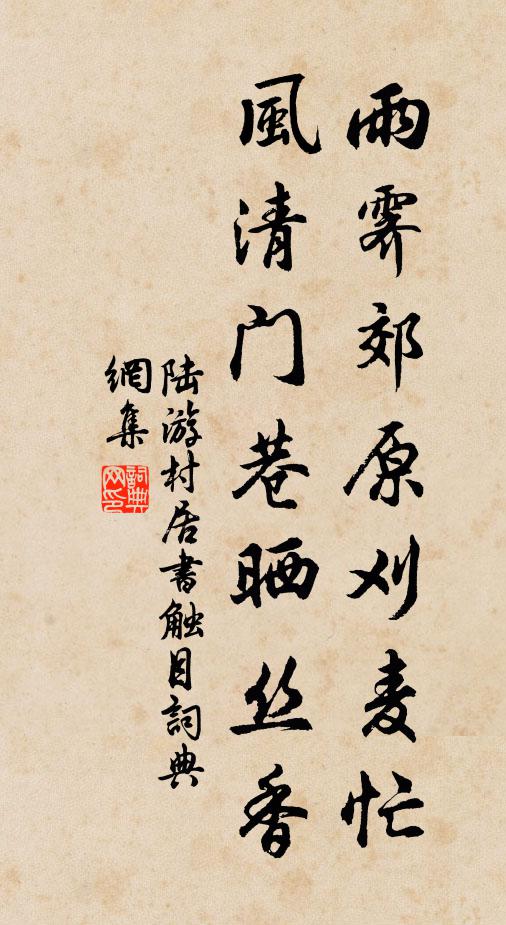 雨霁郊原刈麦忙
風清门巷晒丝香
陆游村居書触目詞典
網集
詞典网印